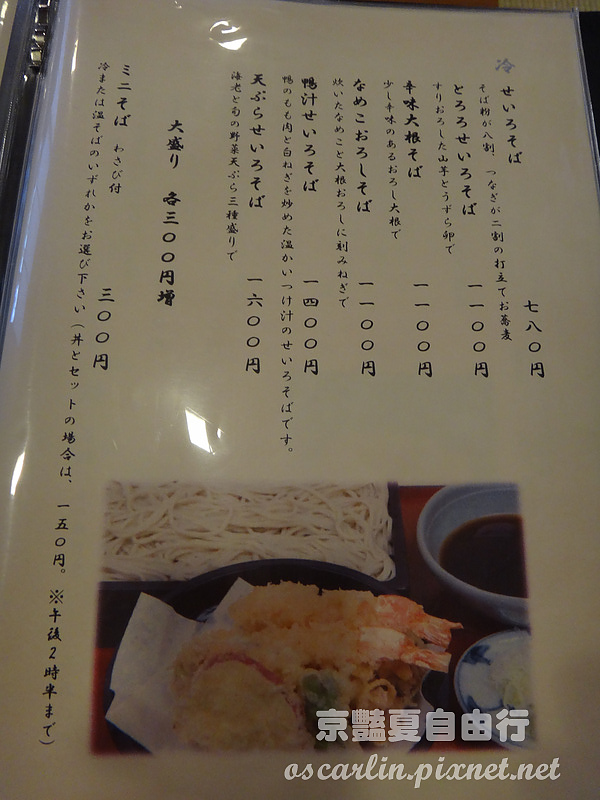 冷
せいろそば 七八〇円
そば粉が八割、つなぎが二割の打立てお蕎麦
とろろせいろそば 一一〇〇円
すりおろした山芋とうずら卵で
辛味大根そば 一一〇〇円
少し辛味のあるおろし大根で
なめこおろしそば 一一〇〇円
炊いたなめこと大根おろしに刻みねぎで
鴨汁せいろそば 一四〇〇円
鴨のもも肉と白ねぎを炒めた温かいつけ汁のせいろそばです。
天ぷらせいろそば 一六〇〇円
海老と旬の野菜天ぷら三種盛りで
大盛り 各三〇〇円増
ミニそば わさび付 三〇〇円
冷または温そばのいずれかをお選び下さい(丼とセットの場合は、一五〇円。 ※午後2時半まで)
京豔夏自由行
oscarlin.pixnet.net